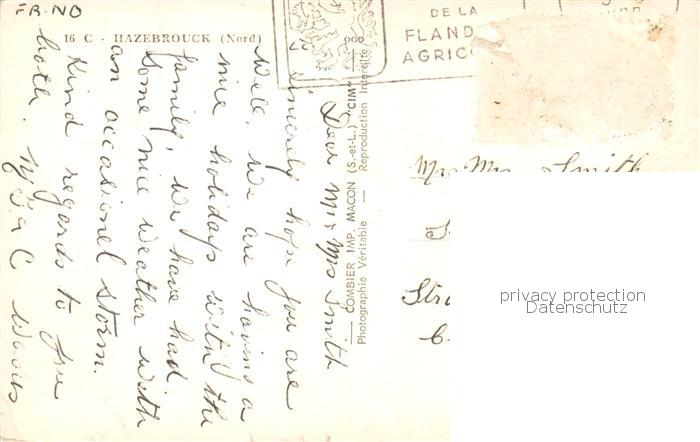 FR. NO
16 C - HAZEBROUCK (Nord)
DE LA
FLAND
AGRIC
Dear Mr & Mrs Smith
Sincerely hope you are
well. We are having a
nice holidays with the
family, we have had
some nice weather with
an occasionel storm.
Kind regards to you
both.
ooo
COMBIER IMP. MACON (S.-et-L.) "CIM"
Photographie Véritable — Reproduction Interdite
Mr Mrs Smith
Str
privacy protection
Datenschutz